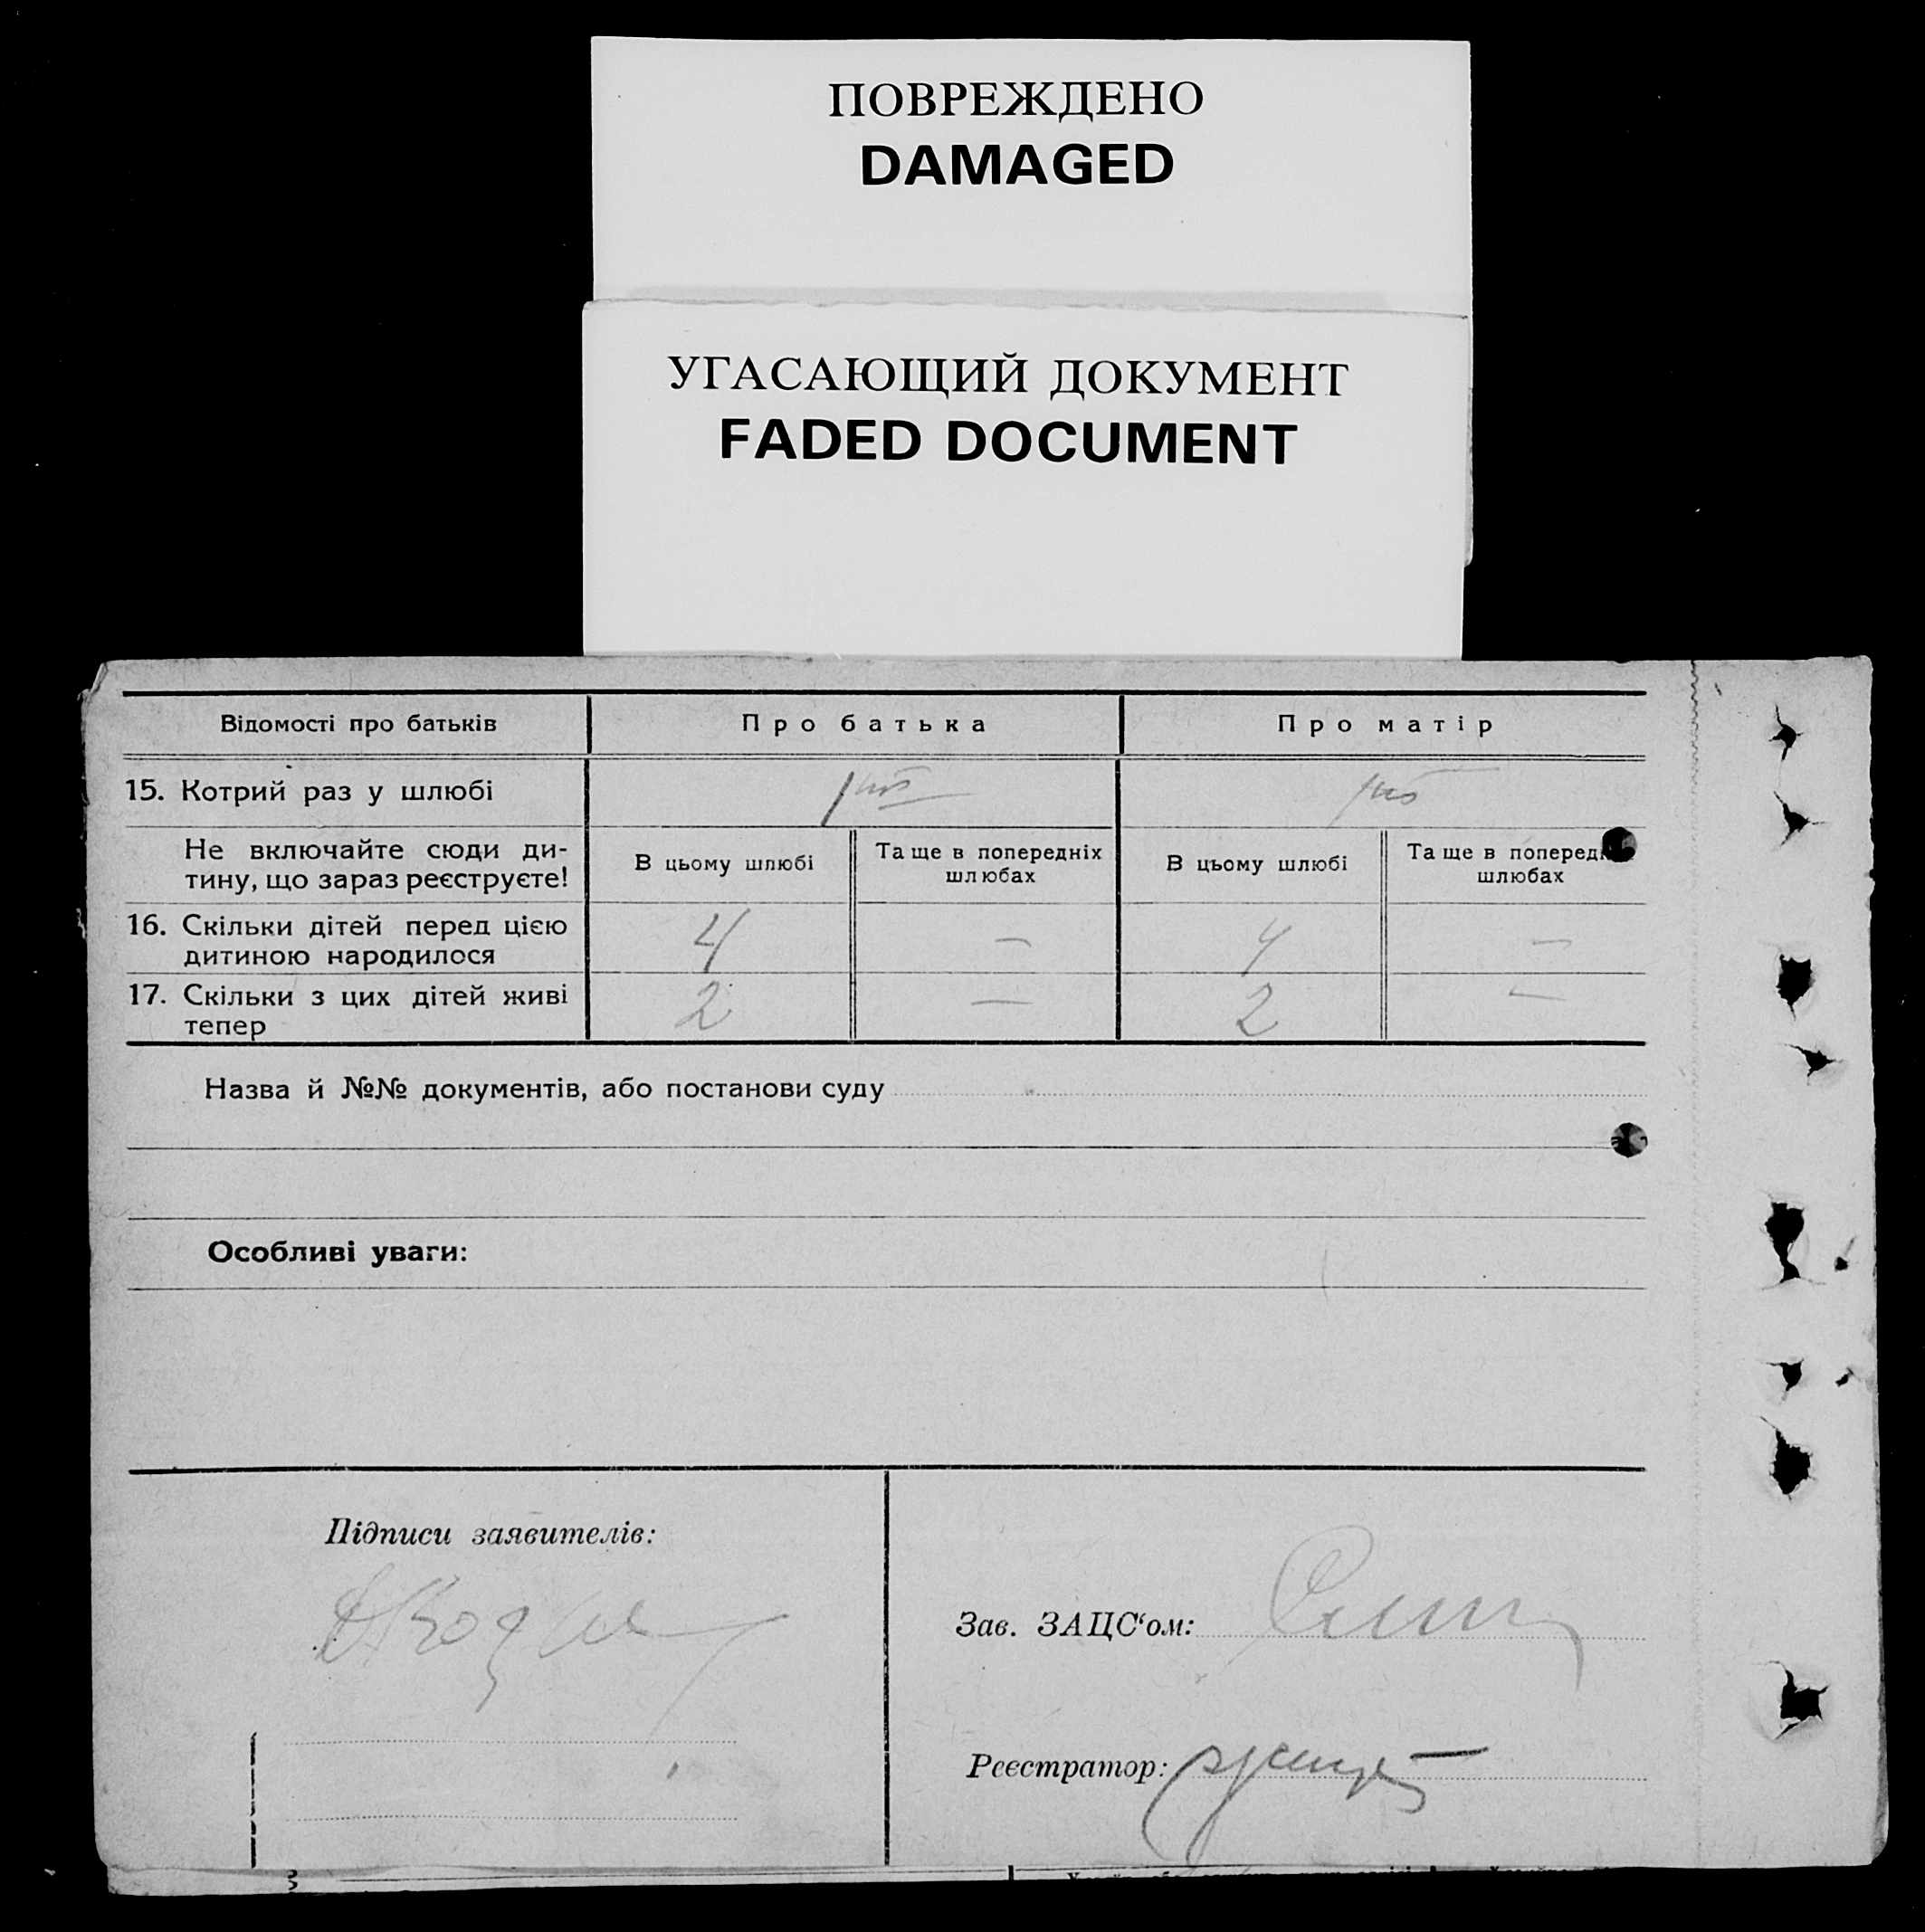 ПОВРЕЖДЕНО
DAMAGED
УГАСАЮЩИЙ ДОКУМЕНТ
FADED DOCUMENT
Відомості про батьків
Про батька
Про матір
15. Котрий раз у шлюбі
Не включайте сюди ди-
тину, що зараз реєструєте!
В цьому шлюбі
Та ще в попередніх
шлюбах
В цьому шлюбі
Та ще в
шлюбах
16. Скільки дітей перед цією
дитиною народилося
4 — 4 —
17. Скільки з цих дітей живі
тепер
2 — 2 —
Назва й №№ документів, або постанови суду
Особливі уваги:
Підписи заявителів:
Зав. ЗАЦС‘ом:
Реєстратор: